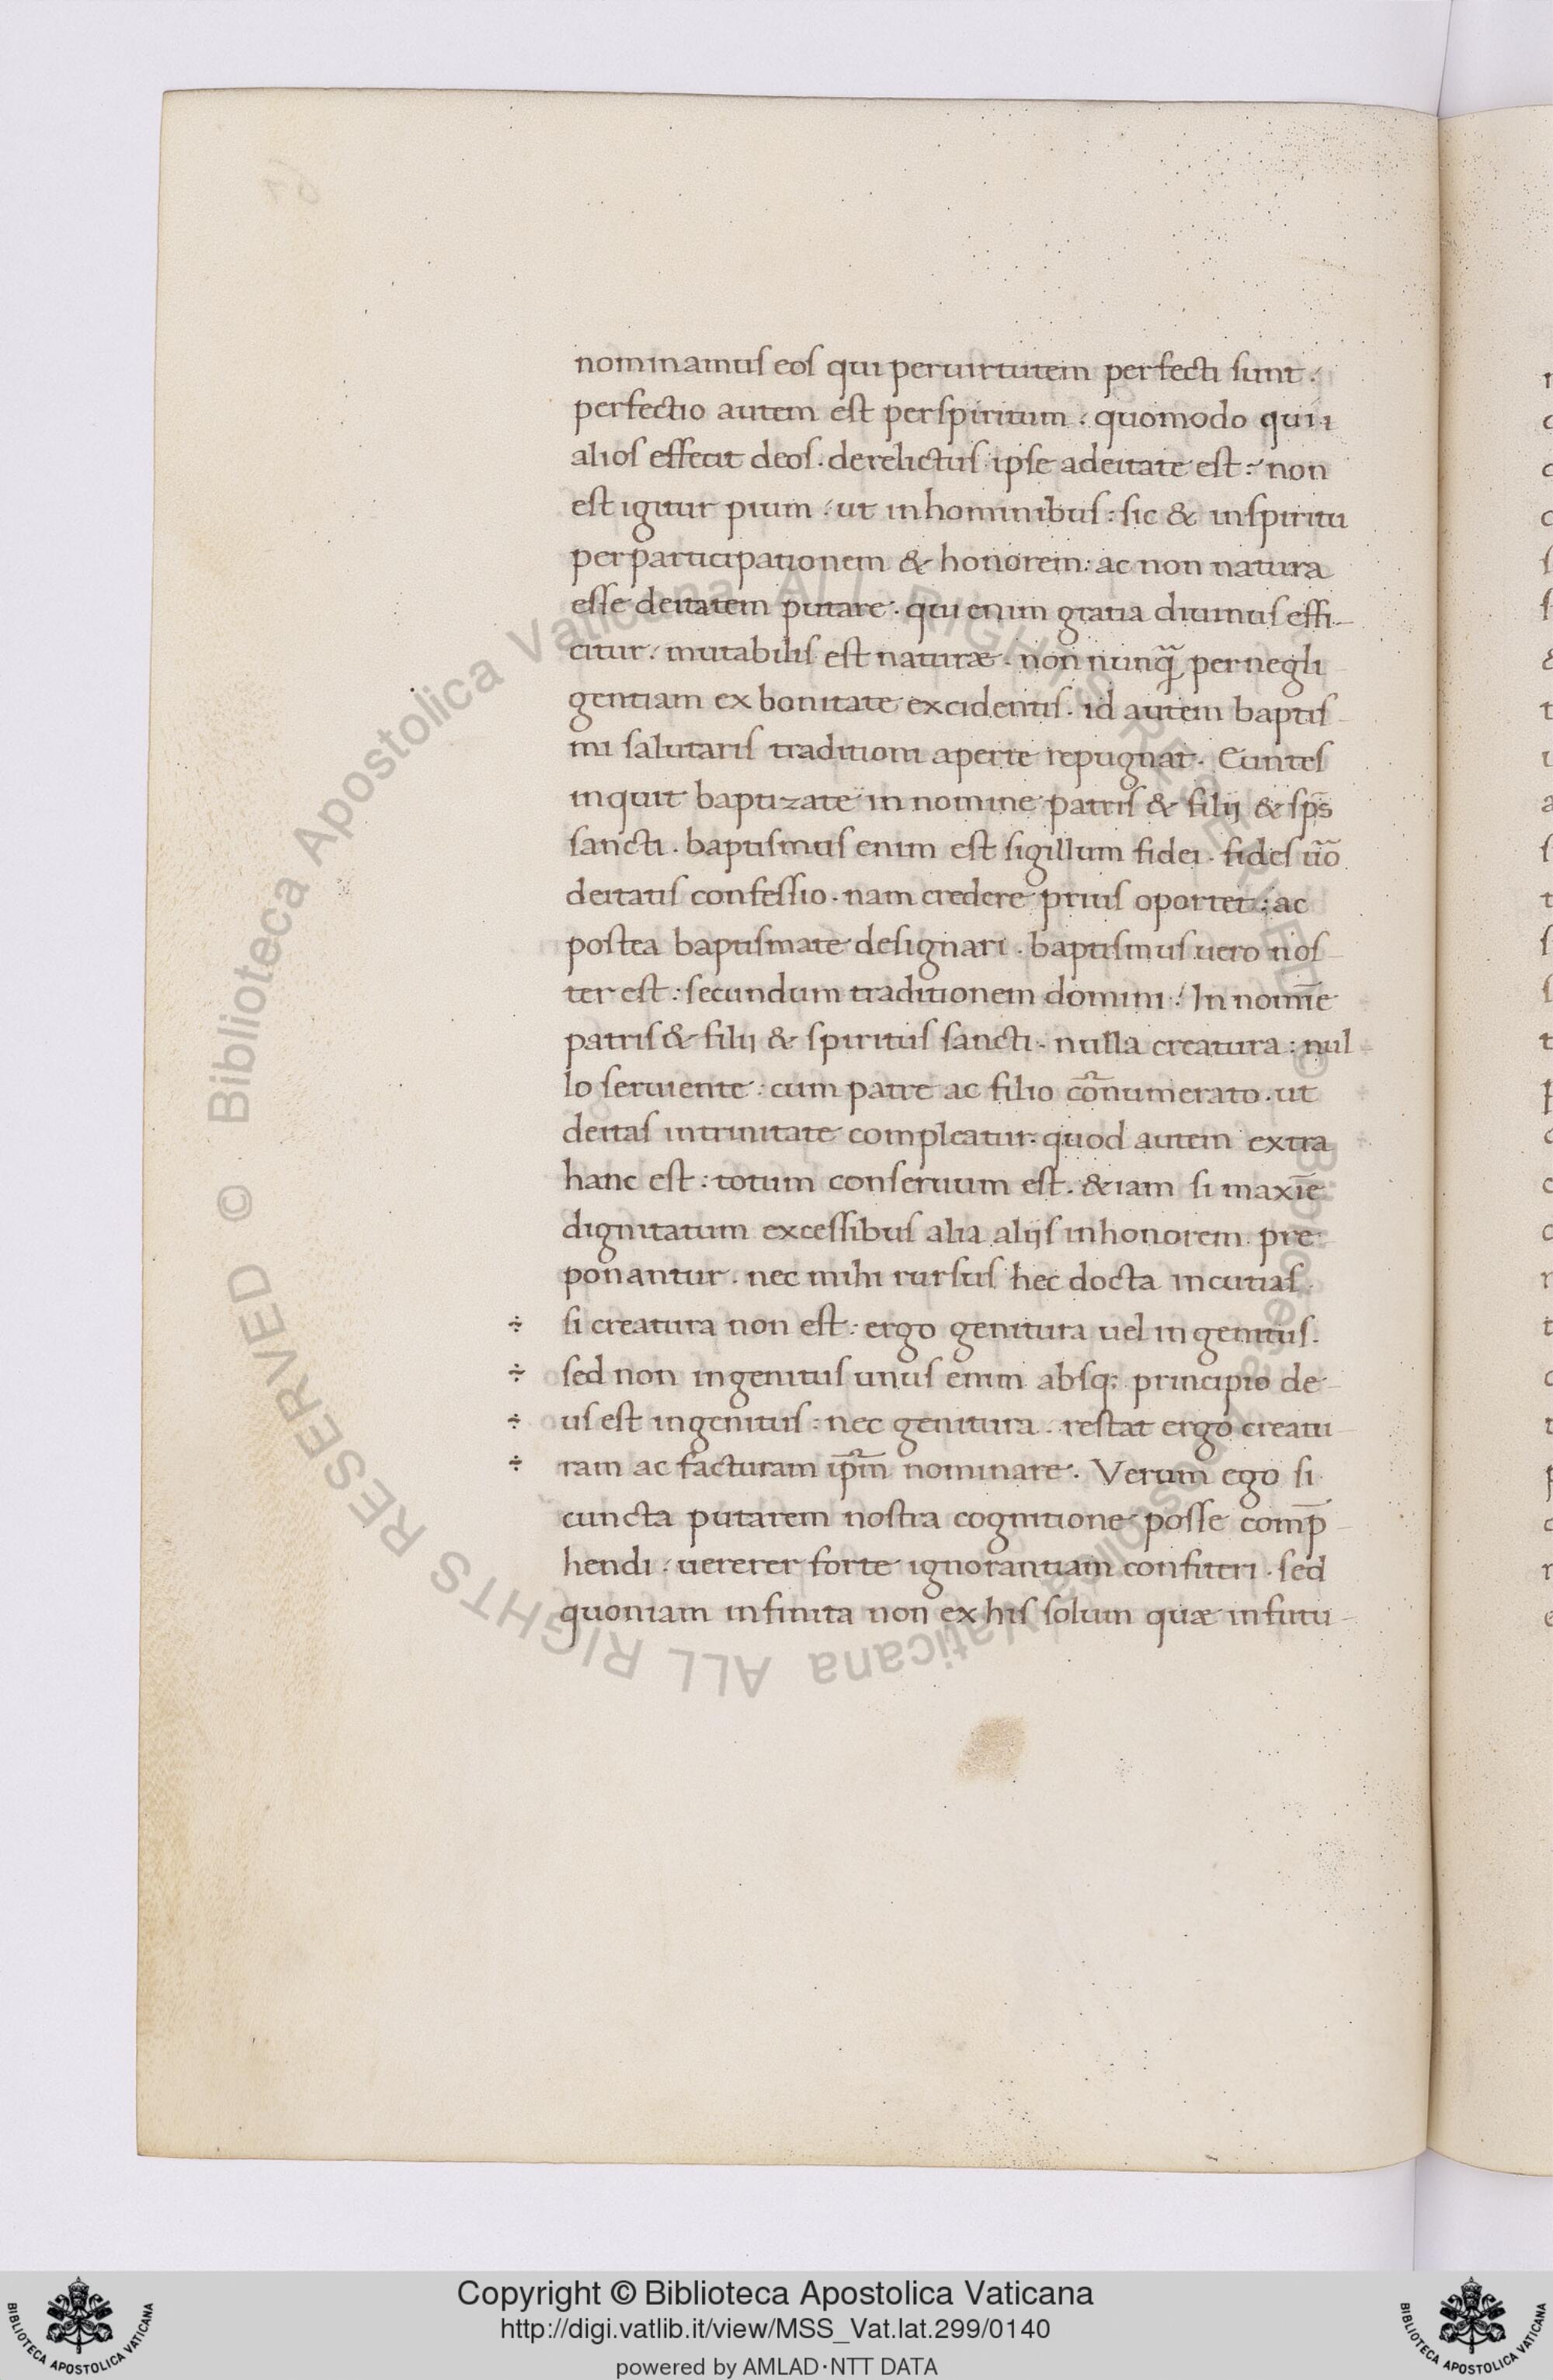 nominamus eos qui per uirtutem perfecti sunt.
perfectio autem est per spiritum: quomodo qui
alios effecit deos. derelictus ipse a deitate est: non
est igitur pium: ut in hominibus: sic & in spiritu
per participationem & honorem: ac non natura
esse deitatem putare. qui enim gratia diuinus effi-
citur. mutabilis est naturæ. non nunq̃ per negli
gentiam ex bonitate excidentis. id autem baptis
mi salutaris traditioni aperte repugnat. Euntes
inquit baptizate in nomine patris & filij & sp̄s
sancti. baptismus enim est sigillum fidei. fides ũo
deitatis confessio. nam credere prius oportet: ac
postea baptismate designari. baptismus uero nos
ter est: secundum traditionem domini: In nomīe
patris & filij & spiritus sancti. nulla creatura: nul
lo seruiente: cum patre ac filio cõnumerato. ut
deitas in trinitate compleatur. quod autem extra
hanc est: totum conseruum est. &iam si maxīe
dignitatum excessibus alia alijs in honorem pre
ponantur. nec mihi rursus hec docta incutias.
÷ si creatura non est: ergo genitura uel ingenitus.
÷ sed non ingenitus unus enim absq; principio de
÷ us est ingenitus: nec genitura. restat ergo creatu
÷ ram ac facturam ip̃m nominare. Verum ego si
cuncta putarem nostra cognitione posse comp̄
hendi. uererer forte ignorantiam confiteri. sed
quoniam infinita non ex his solum quæ in futu
© Biblioteca Apostolica Vaticana ALL RIGHTS RESERVED
© Biblioteca Apostolica Vaticana ALL RIGHTS RESERVED
Copyright © Biblioteca Apostolica Vaticana
http://digi.vatlib.it/view/MSS_Vat.lat.299/0140
powered by AMLAD·NTT DATA
BIBLIOTECA APOSTOLICA VATICANA
BIBLIOTECA APOSTOLICA VATICANA